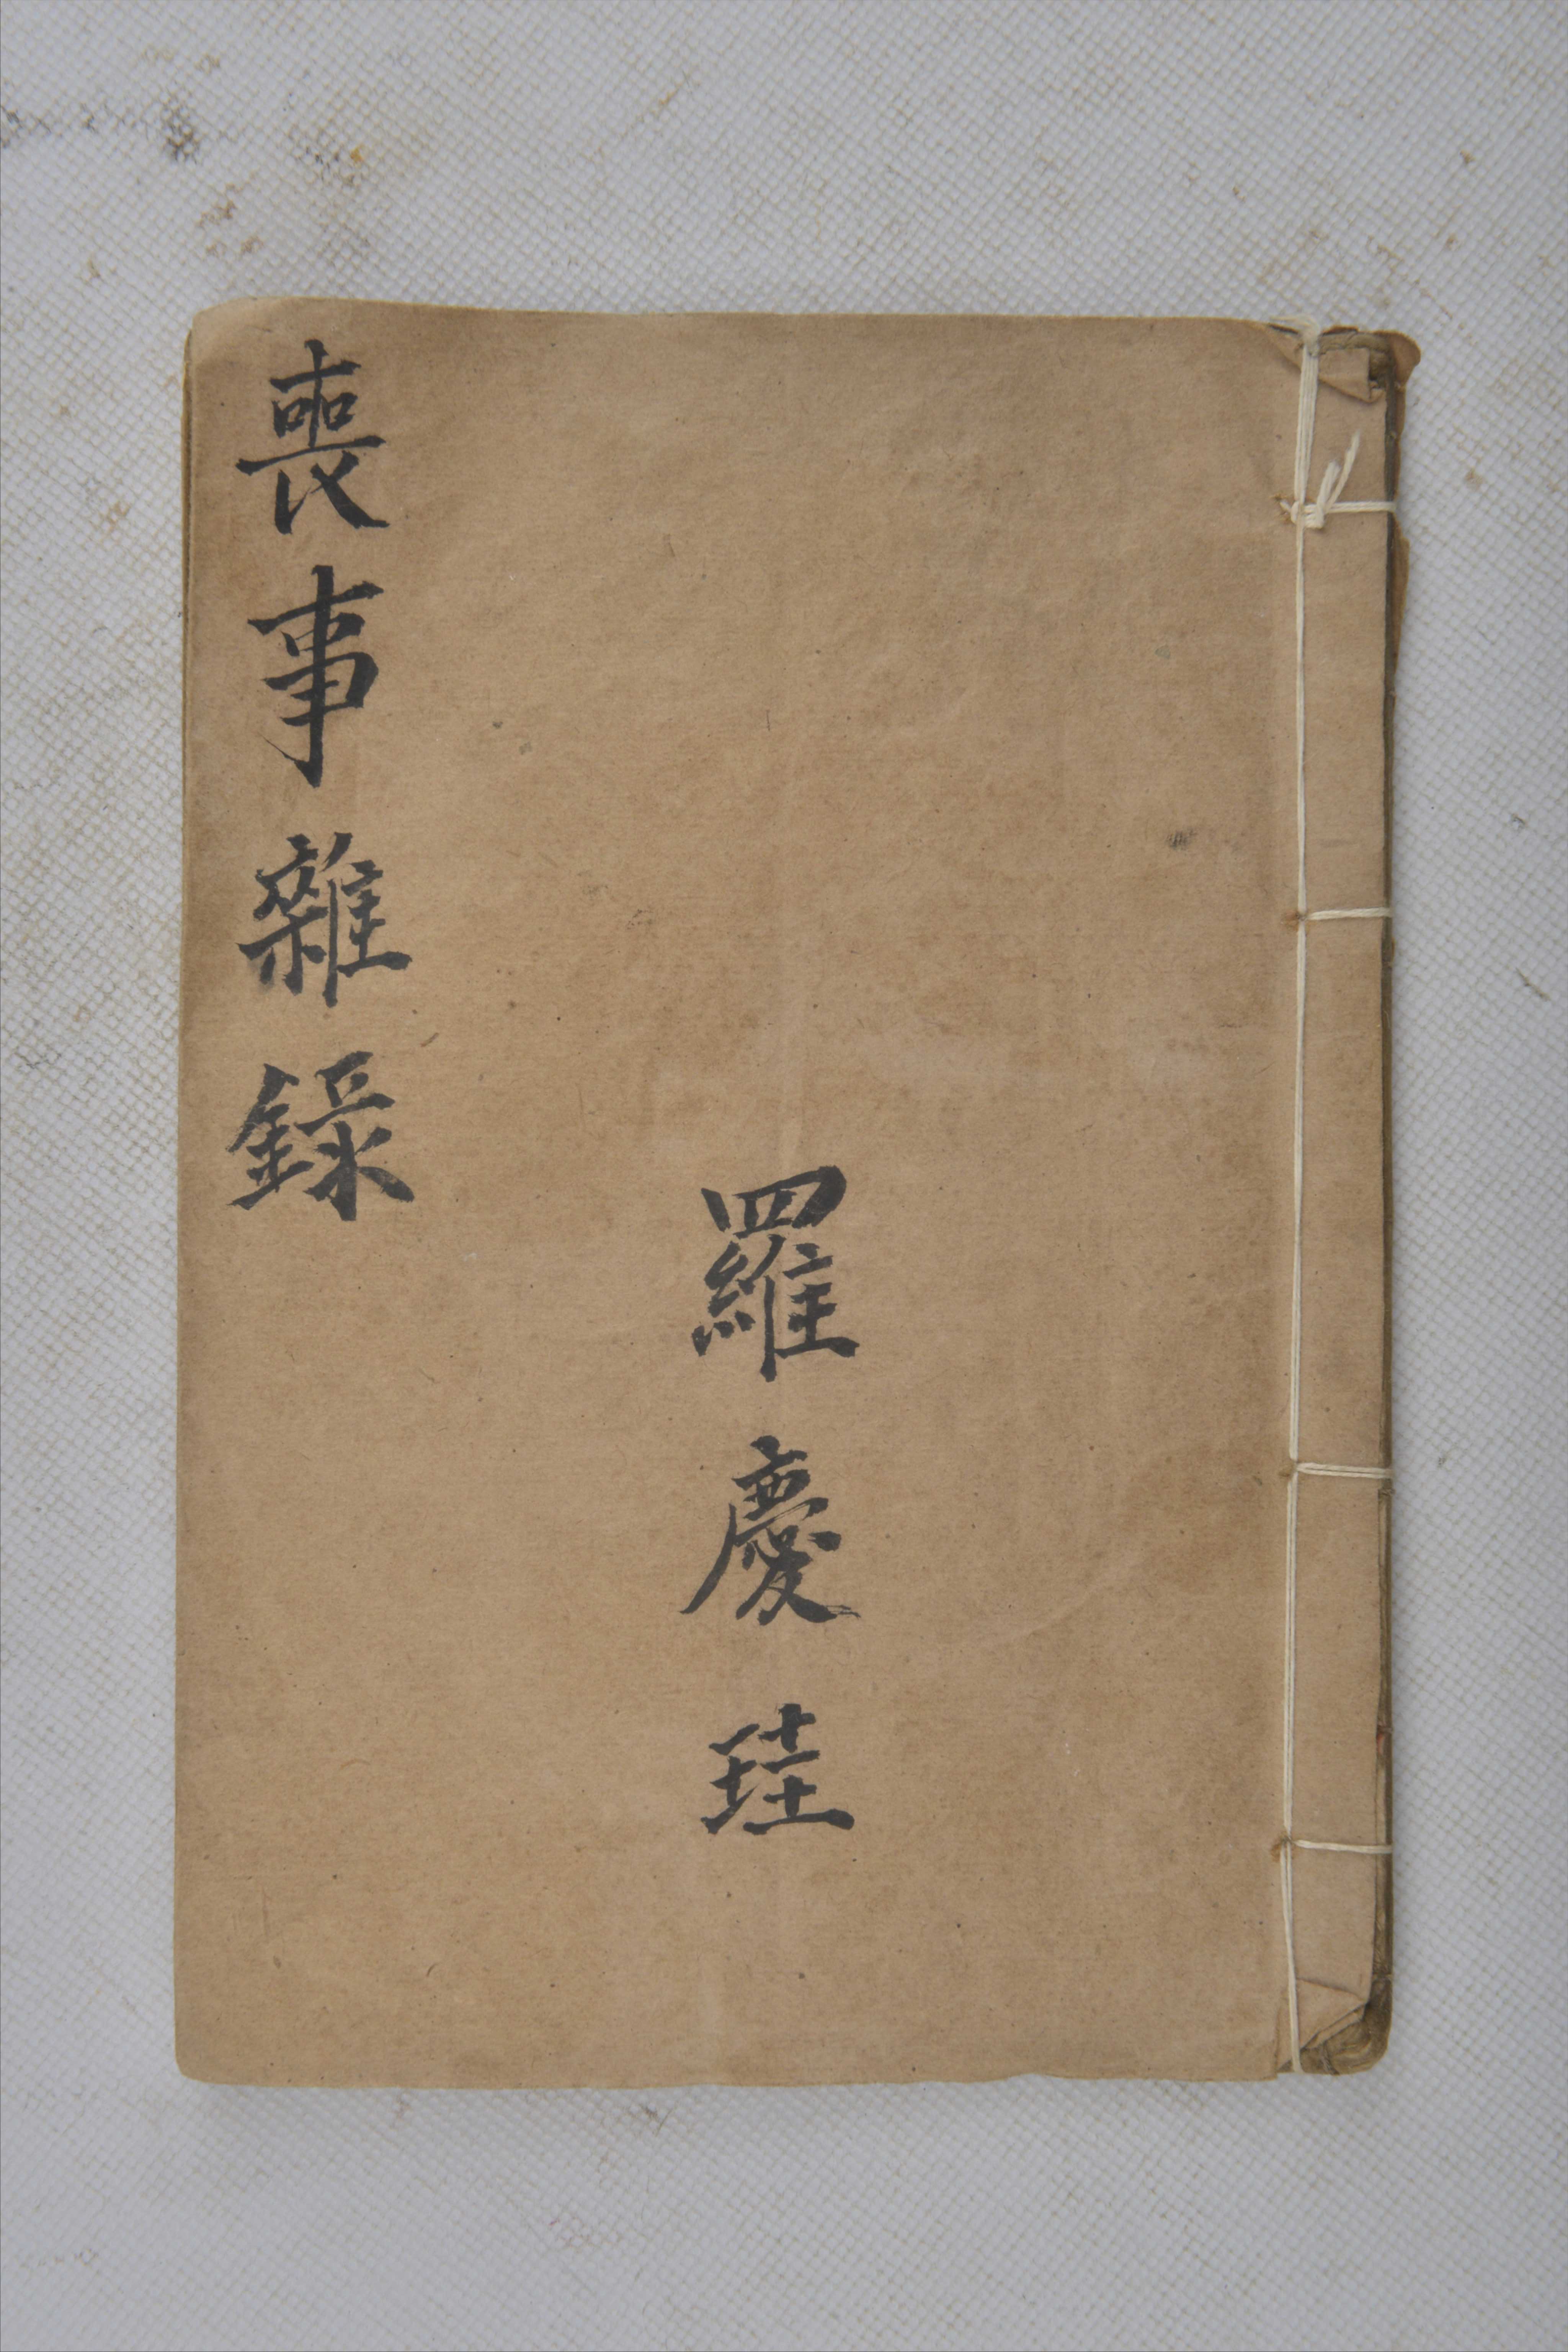 羅慶珪
喪事雜錄